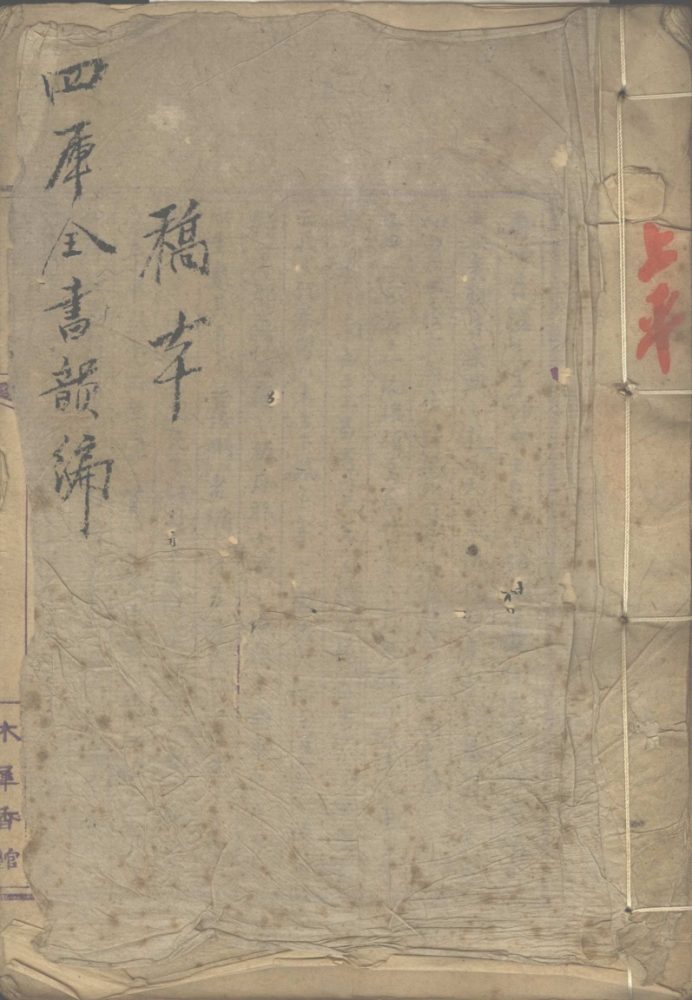 上平
稿本
四庫全書韻編
木犀香館